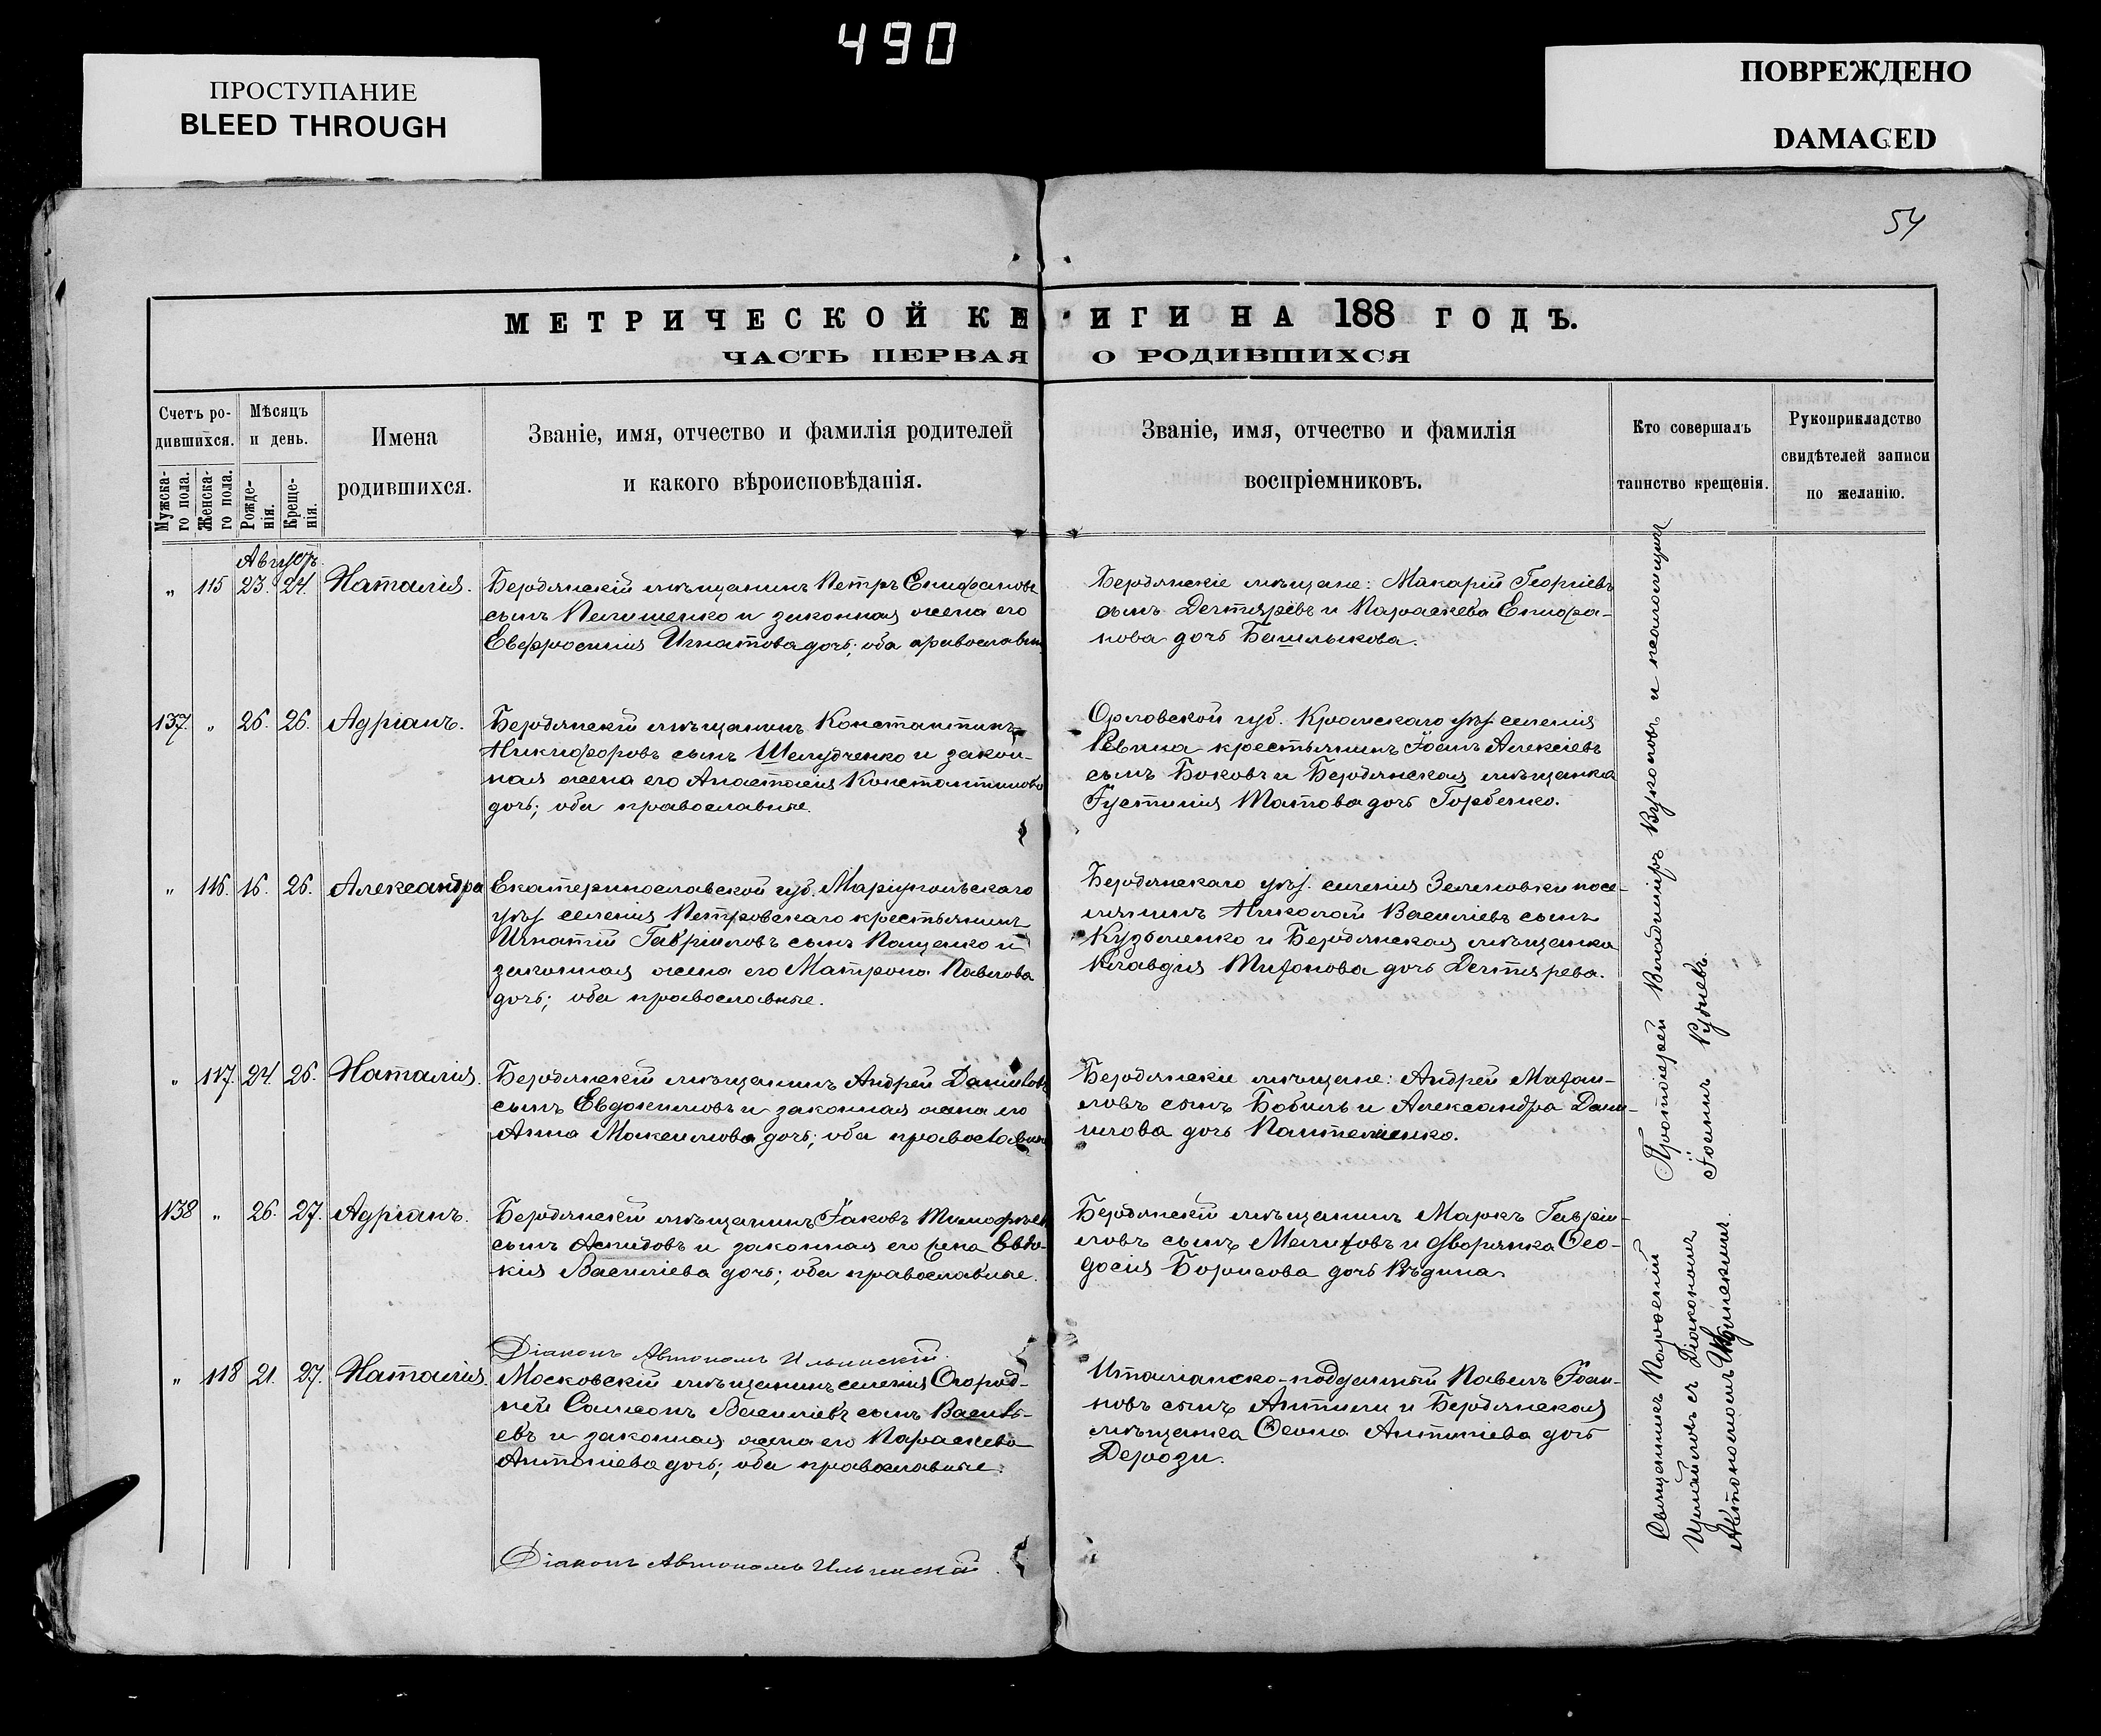 490
ПРОСТУПАНИЕ
BLEED THROUGH
ПОВРЕЖДЕНО
DAMAGED
54
МЕТРИЧЕСКОЙ КН ИГИ НА 188 ГОДЪ.
ЧАСТЬ ПЕРВАЯ О РОДИВШИХСЯ
Счетъ ро-
дившихся.
Мужска-
го пола.
Женска-
го пола.
Мѣсяцъ
и день.
Рожде-
нія.
Креще-
нія.
Имена
родившихся.
Званіе, имя, отчество и фамилія родителей
и какого вѣроисповѣданія.
Званіе, имя, отчество и фамилія
воспріемниковъ.
Кто совершалъ
таинство крещенія.
Рукоприкладство
свидѣтелей записи
по желанію.
Августъ
„ 115 23. 24. Наталія.
Бердянскій мѣщанинъ Петръ Епифановъ
сынъ и законная жена его
Евфросинія Игнатова дочь; оба православн.
Бердянскіе мѣщане: Макарій Георгіевъ
сынъ Дегтярёвъ и Параскева Епифа-
нова дочь Башлыкова.
137. „ 26. 26. Адріанъ.
Бердянскій мѣщанинъ Константинъ
Никифоровъ сынъ Шелудченко и закон-
ная жена его Анастасія Константинова
дочь; оба православные.
Орловской губ. Кромскаго уѣз. селенія
крестьянинъ Іоаннъ Алексіевъ
сынъ Боковъ и Бердянская мѣщанка
Іустинія Титова дочь Горбенко.
„ 116. 16. 26. Александра
Екатеринославской губ. Маріупольскаго
уѣз. селенія Петровскаго крестьянинъ
Игнатій Гавріиловъ сынъ Пащенко и
законная жена его Матрона Павлова
дочь; оба православные.
Бердянскаго уѣз. селенія Зеленовки посе-
лянинъ Николай Василіевъ сынъ
Кузьменко и Бердянская мѣщанка
Клавдія Тихонова дочь Дегтярева.
„ 117. 24. 26. Наталія.
Бердянскій мѣщанинъ Андрей Даниловъ
сынъ Евдокимовъ и законная жена его
Анна Максимова дочь; оба православн
Бердянскіе мѣщане: Андрей Михаи-
ловъ сынъ Бобыль и Александра Дани-
илова дочь Пантелеенко.
138 „ 26. 27. Адріанъ.
Бердянскій мѣщанинъ Іаковъ Тимофѣев
сынъ Аспидовъ и законная его жена Евдо-
кія Василіева дочь; оба православные.
Бердянскій мѣщанинъ Маркъ Гавріи-
ловъ сынъ Мелиховъ и дворянка Ѳео-
досія Борисова дочь Рѣдина.
Діаконъ Автономъ Ильинскій.
„ 118 21. 27. Наталія.
Московскій мѣщанинъ селенія Огород-
ней Сампсонъ Василіевъ сынъ Василь-
евъ и законная жена его Параскева
Антоніева дочь; оба православные.
Италіанско-подданный Павелъ Іоан-
новъ сынъ Античи и Бердянская
мѣщанка Ѳеона Антоніева дочь
Дерози.
Діаконъ Автономъ Ильинскій.
Протоіерей Владиміръ Вуколовъ и псаломщикъ
Іоаннъ
Священникъ
Измаиловъ съ Діакономъ
Автономомъ Ильинскимъ.